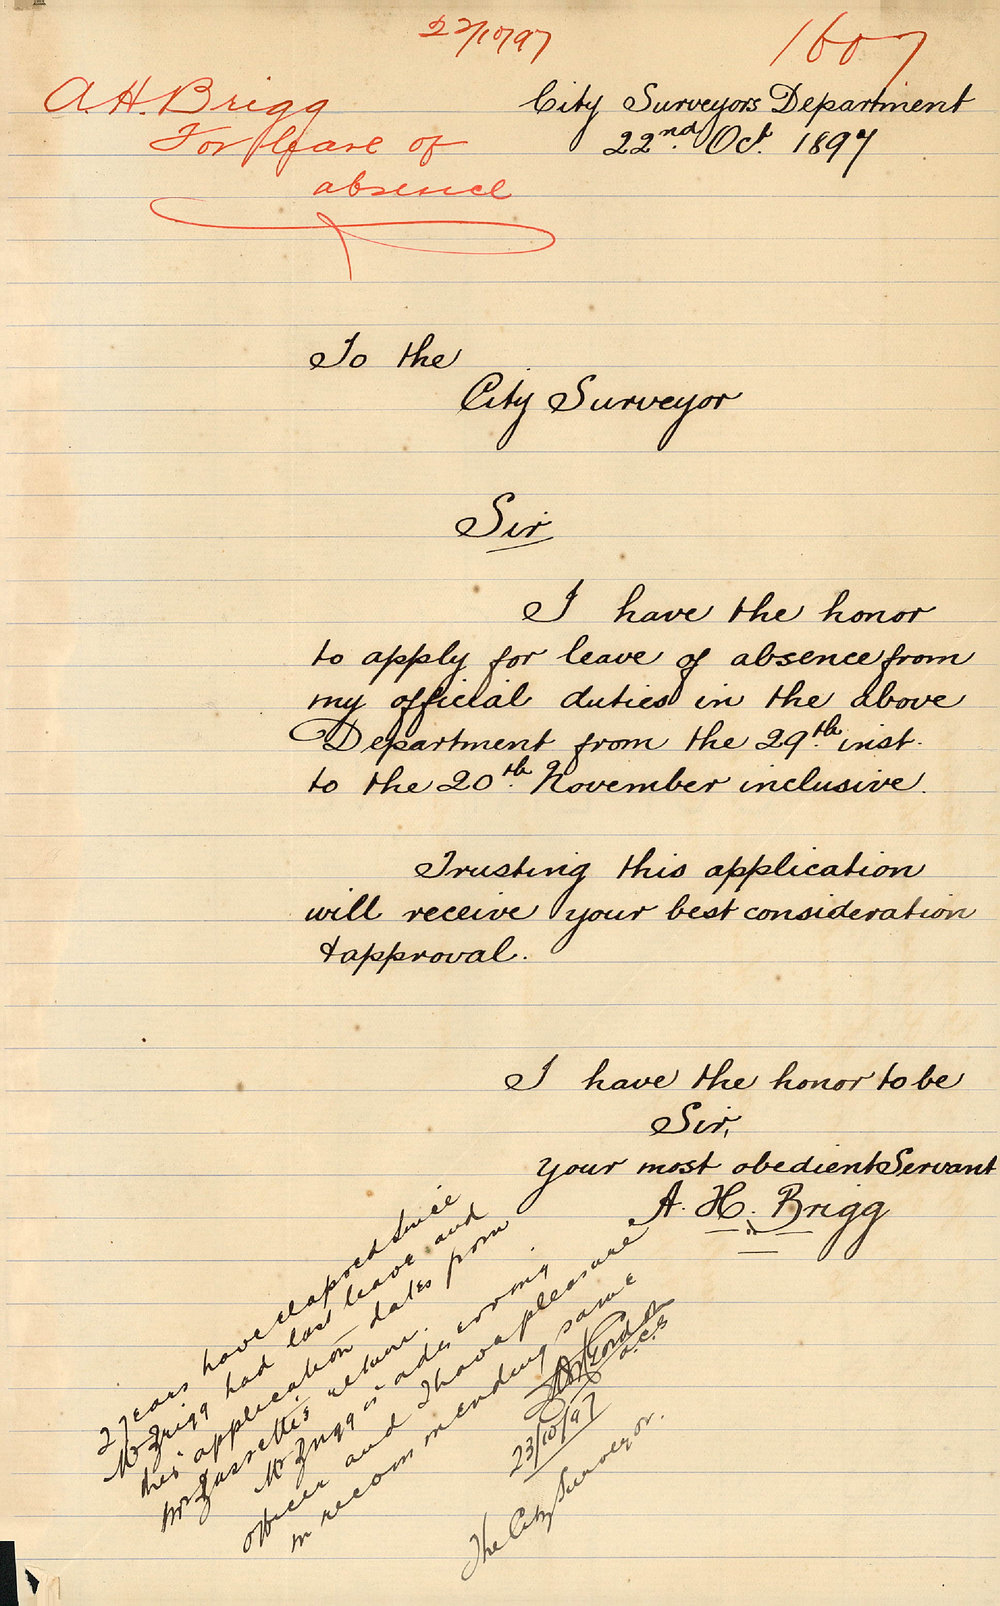 22/10/97
1607
A.H. Brigg
For leave of
absence
City Surveyors Department
22nd. Oct. 1897
To the
City Surveyor
Sir
I have the honor
to apply for leave of absence from
my official duties in the above
Department from the 29th. inst.
to the 20th. November inclusive.
Trusting this application
will receive your best consideration
& approval.
I have the honor to be
Sir,
your most obedient Servant
A. H. Brigg
2 years have elapsed since
Mr Brigg had last leave and
this application dates from
Mr return.
Mr Brigg is a deserving
officer and I have pleasure
in recommending same
a.c.s
23/10/97
The City Surveyor.